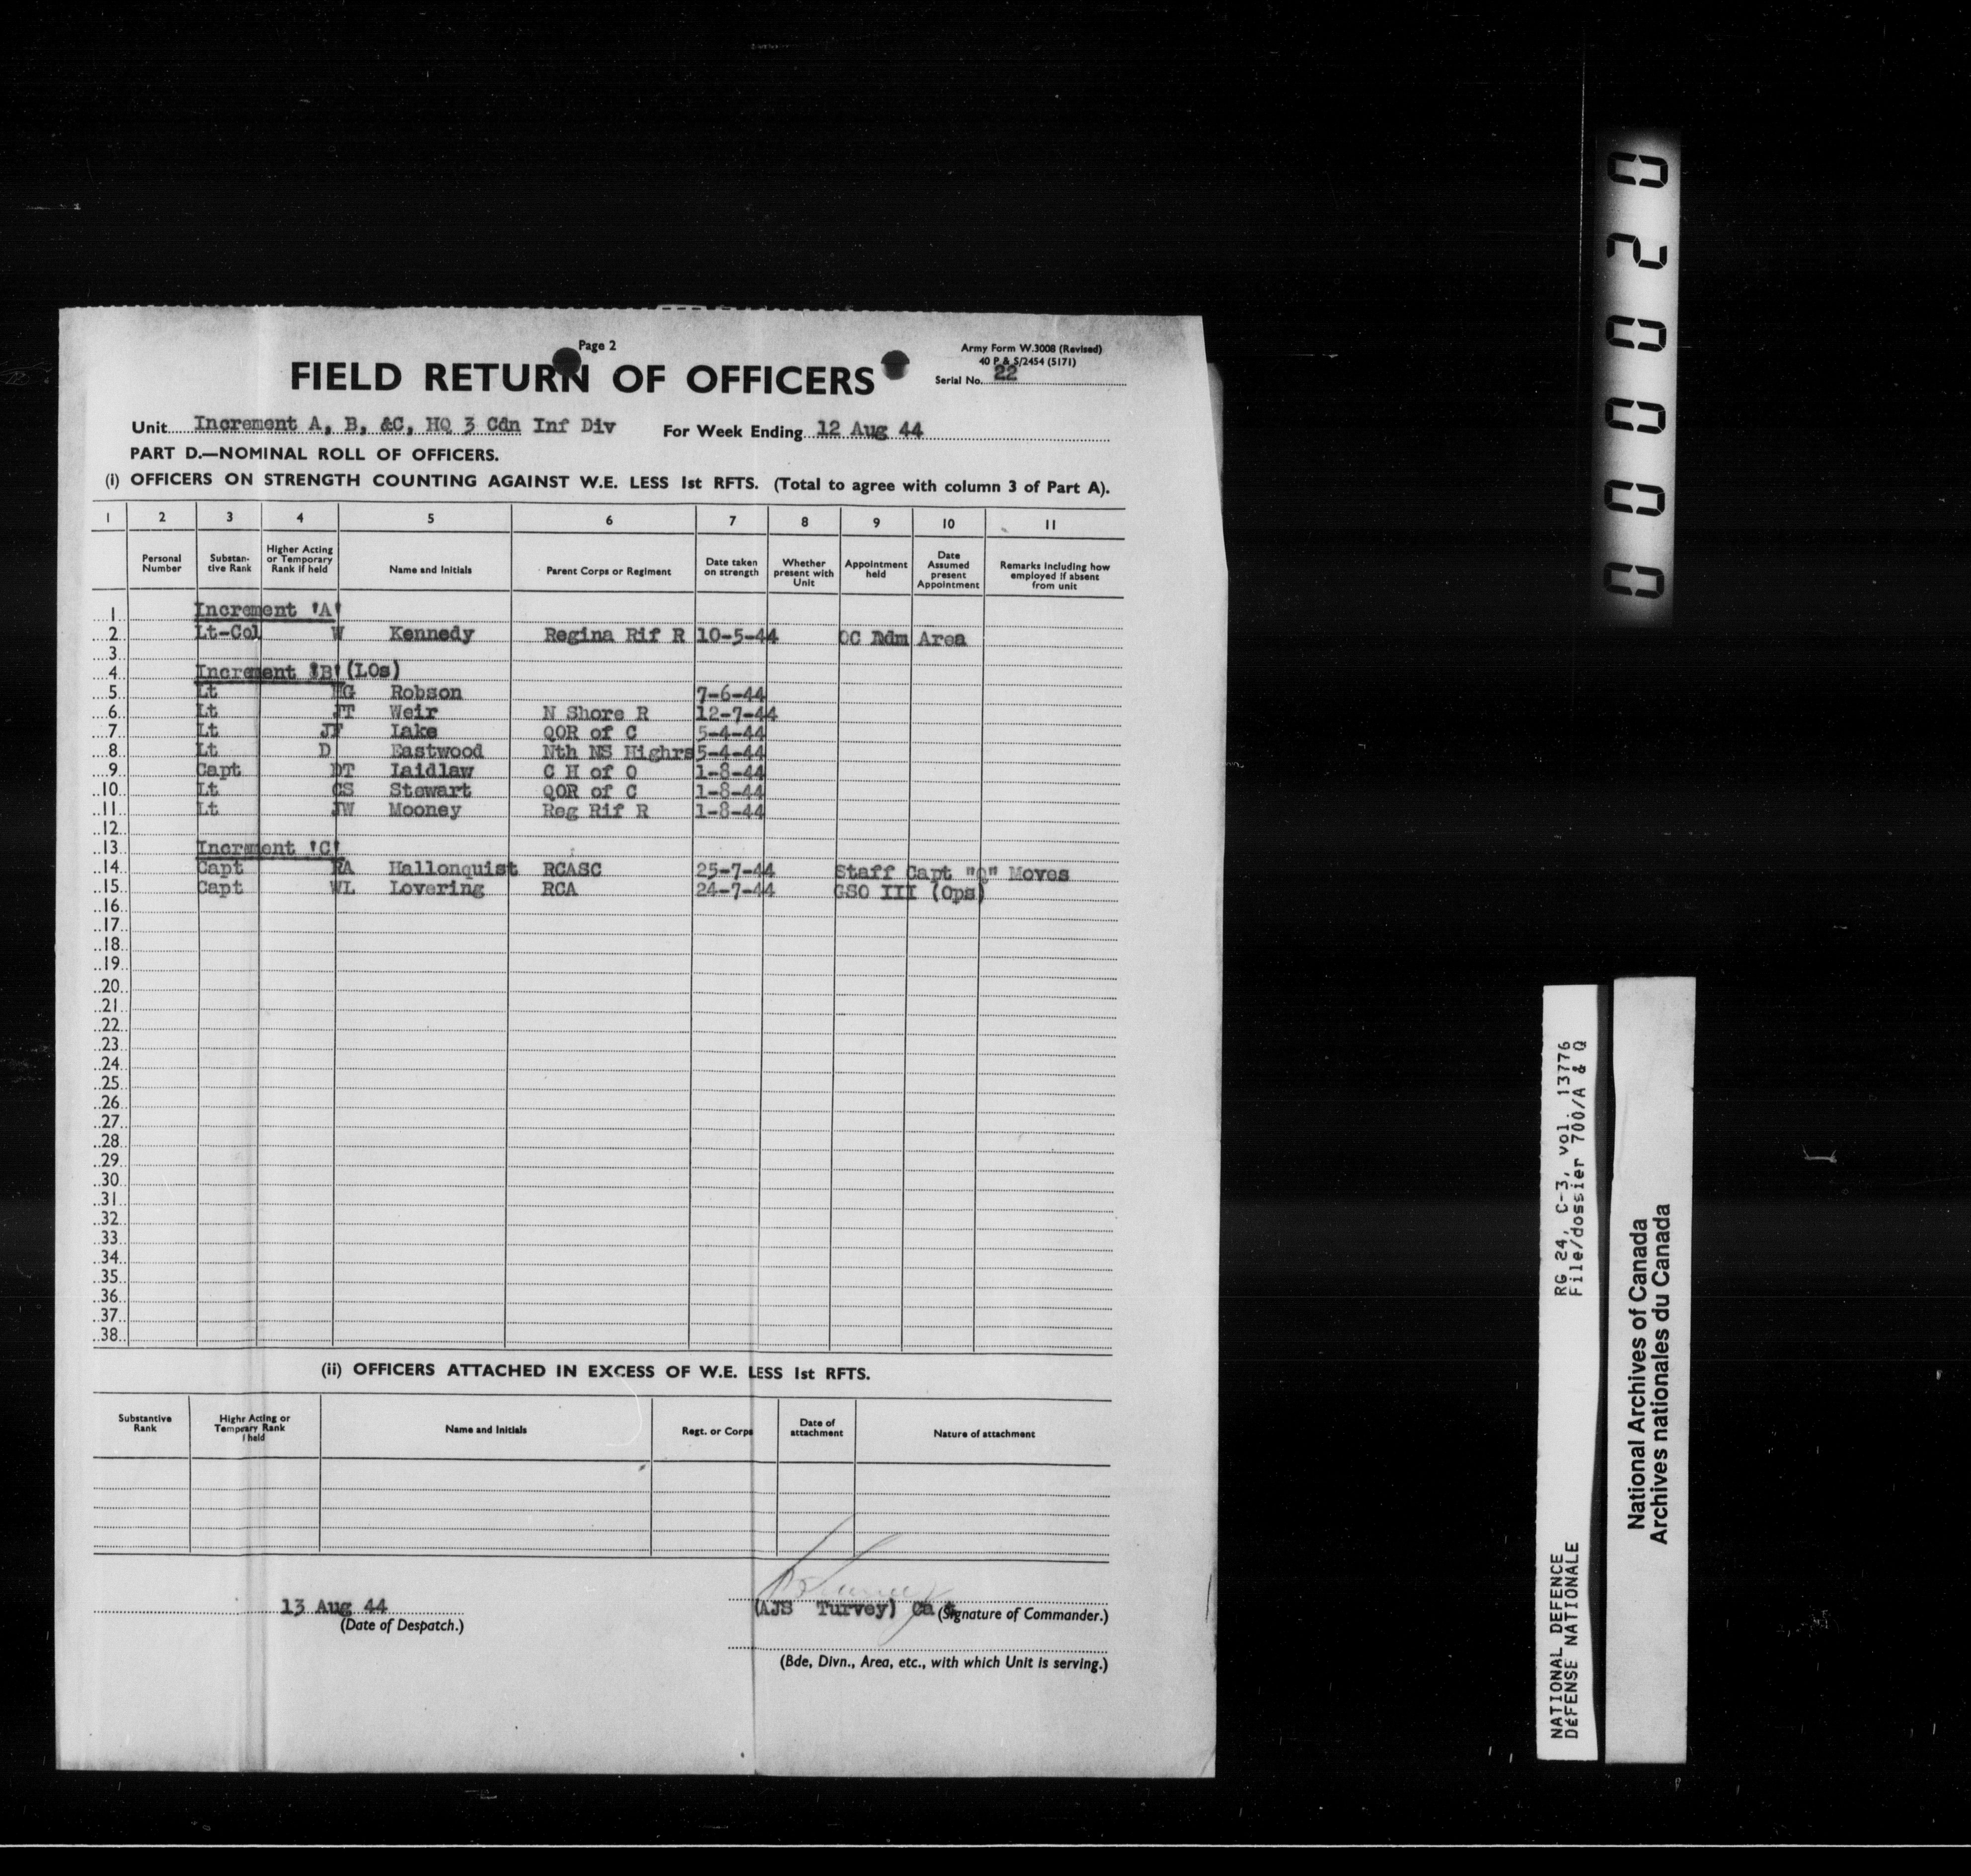 Page 2
Army Form W.3008 (Revised)
40 P & S/2454 (5171)
FIELD RETURN OF OFFICERS
Serial No. 22
Unit Increment A, B, &C, HQ 3 Cdn Inf Div For Week Ending 12 Aug 44
PART D.—NOMINAL ROLL OF OFFICERS.
(i) OFFICERS ON STRENGTH COUNTING AGAINST W.E. LESS 1st RFTS. (Total to agree with column 3 of Part A).
1 2 3 4 5 6 7 8 9 10 11
Personal Number
Substan-tive Rank
Higher Acting or Temporary Rank if held
Name and Initials
Parent Corps or Regiment
Date taken on strength
Whether present with Unit
Appointment held
Date Assumed present Appointment
Remarks including how employed if absent from unit
1 Increment 'A'
2 Lt-Col W Kennedy Regina Rif R 10-5-44 OC Adm Area
3
4 Increment 'B' (LOs)
5 Lt G Robson 7-6-44
6 Lt JT Weir N Shore R 12-7-44
7 Lt JF Lake QOR of C 5-4-44
8 Lt D Eastwood Nth NS Highrs 5-4-44
9 Capt DT Laidlaw C H of O 1-8-44
10 Lt CS Stewart QOR of C 1-8-44
11 Lt JW Mooney Reg Rif R 1-8-44
12
13 Increment 'C'
14 Capt RA Hallonquist RCASC 25-7-44 Staff Capt "Q" Moves
15 Capt WL Lovering RCA 24-7-44 GSO III (Ops)
16
17
18
19
20
21
22
23
24
25
26
27
28
29
30
31
32
33
34
35
36
37
38
(ii) OFFICERS ATTACHED IN EXCESS OF W.E. LESS 1st RFTS.
Substantive Rank
Highr Acting or Temprary Rank i held
Name and Initials
Regt. or Corps
Date of attachment
Nature of attachment
13 Aug 44
(Date of Despatch.)
(AJS Turvey) Ca t (Signature of Commander.)
(Bde, Divn., Area, etc., with which Unit is serving.)
000020
RG 24, C-3, vol. 13776
File/dossier 700/A & Q
NATIONAL DEFENCE
DÉFENSE NATIONALE
National Archives of Canada
Archives nationales du Canada